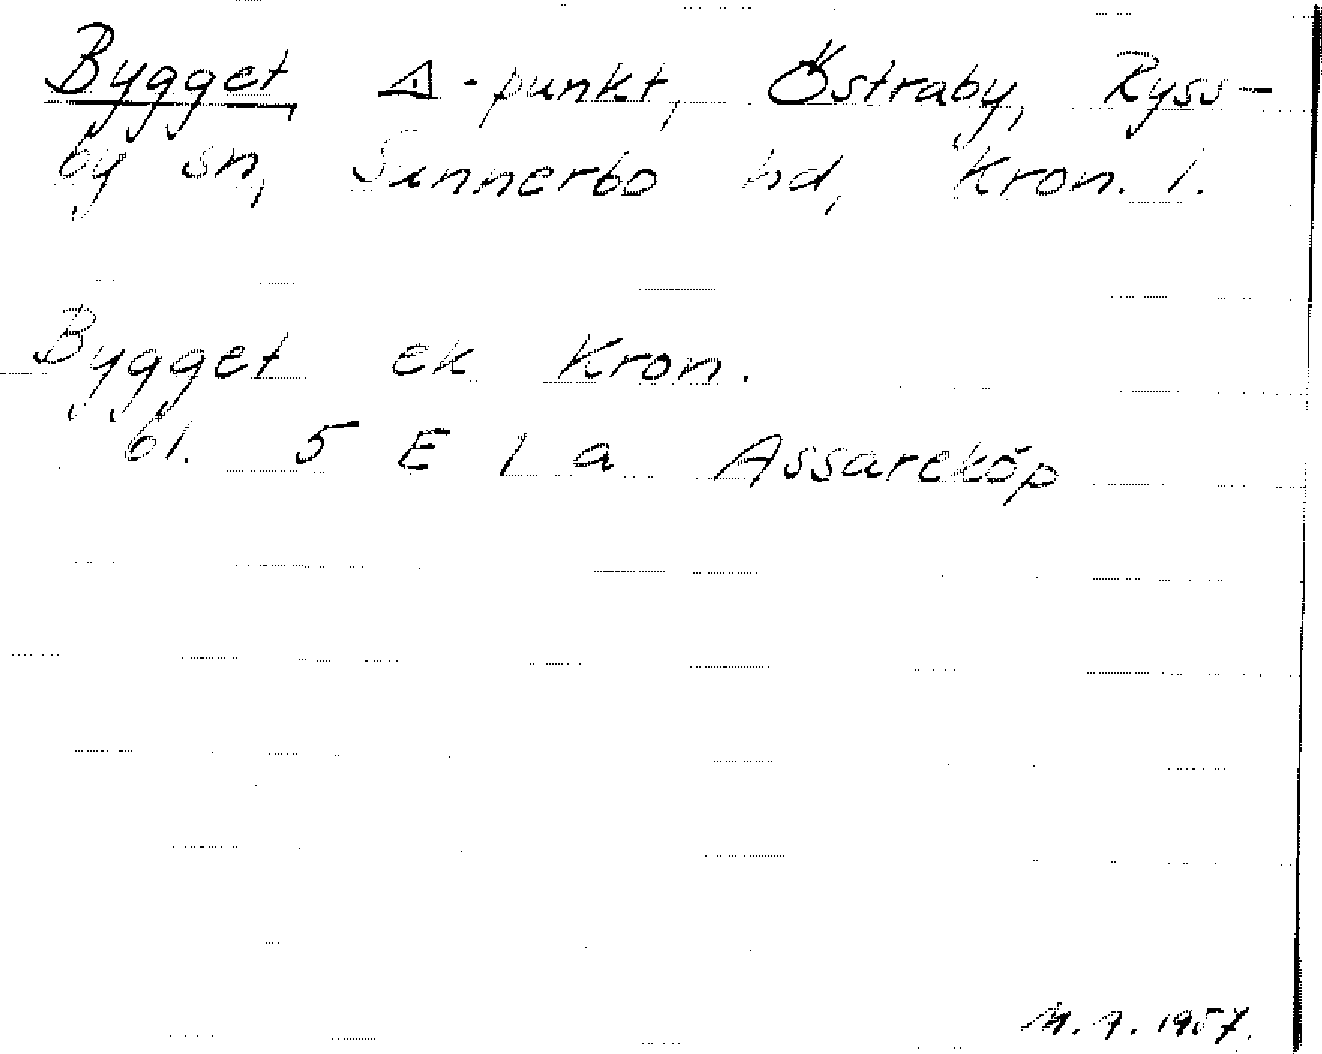 Bygget △-punkt, Östraby, Ryss-
by sn, Sunnerbo hd, Kron. l.
Bygget ek Kron.
bl. 5 E 1 a Assareköp
M. A. 1957.